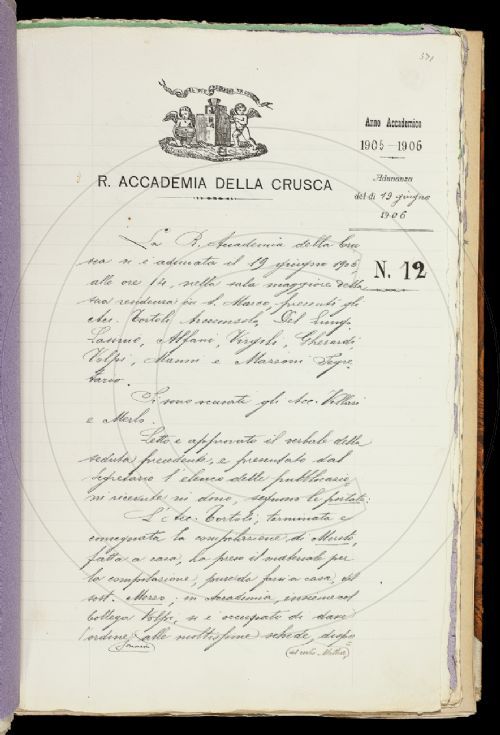 371
Anno Accademico
1905-1906
R. ACCADEMIA DELLA CRUSCA
Adunanza
del dì 19 giugno
1906
N. 12
La R. Accademia della Cru
sca si è adunata il 19 giugno 1906,
alle ore 14, nella sala maggiore della
sua residenza in S. Marco, presenti gli
Acc. Tortoli, Arciconsolo, Del Lungo,
Alfani, Virgili, Gherardi,
Volpi, Manni e Mazzoni Segre
tario.
Si sono scusati gli Acc. Villari
e Merlo.
Letto e approvato il verbale della
seduta precedente, e presentato dal
Segretario l'elenco delle pubblicazio
ni ricevute in dono, seguono le portate:
L'Acc. Tortoli, terminata e
consegnata la compilazione di Mento,
fatta a casa, ha preso il materiale per
la compilazione, pure da farsi a casa, del
sost. Merco; in Accademia, insieme col
Collega Volpi, si è occupato di dare
ordine alle moltissime schede, dispo